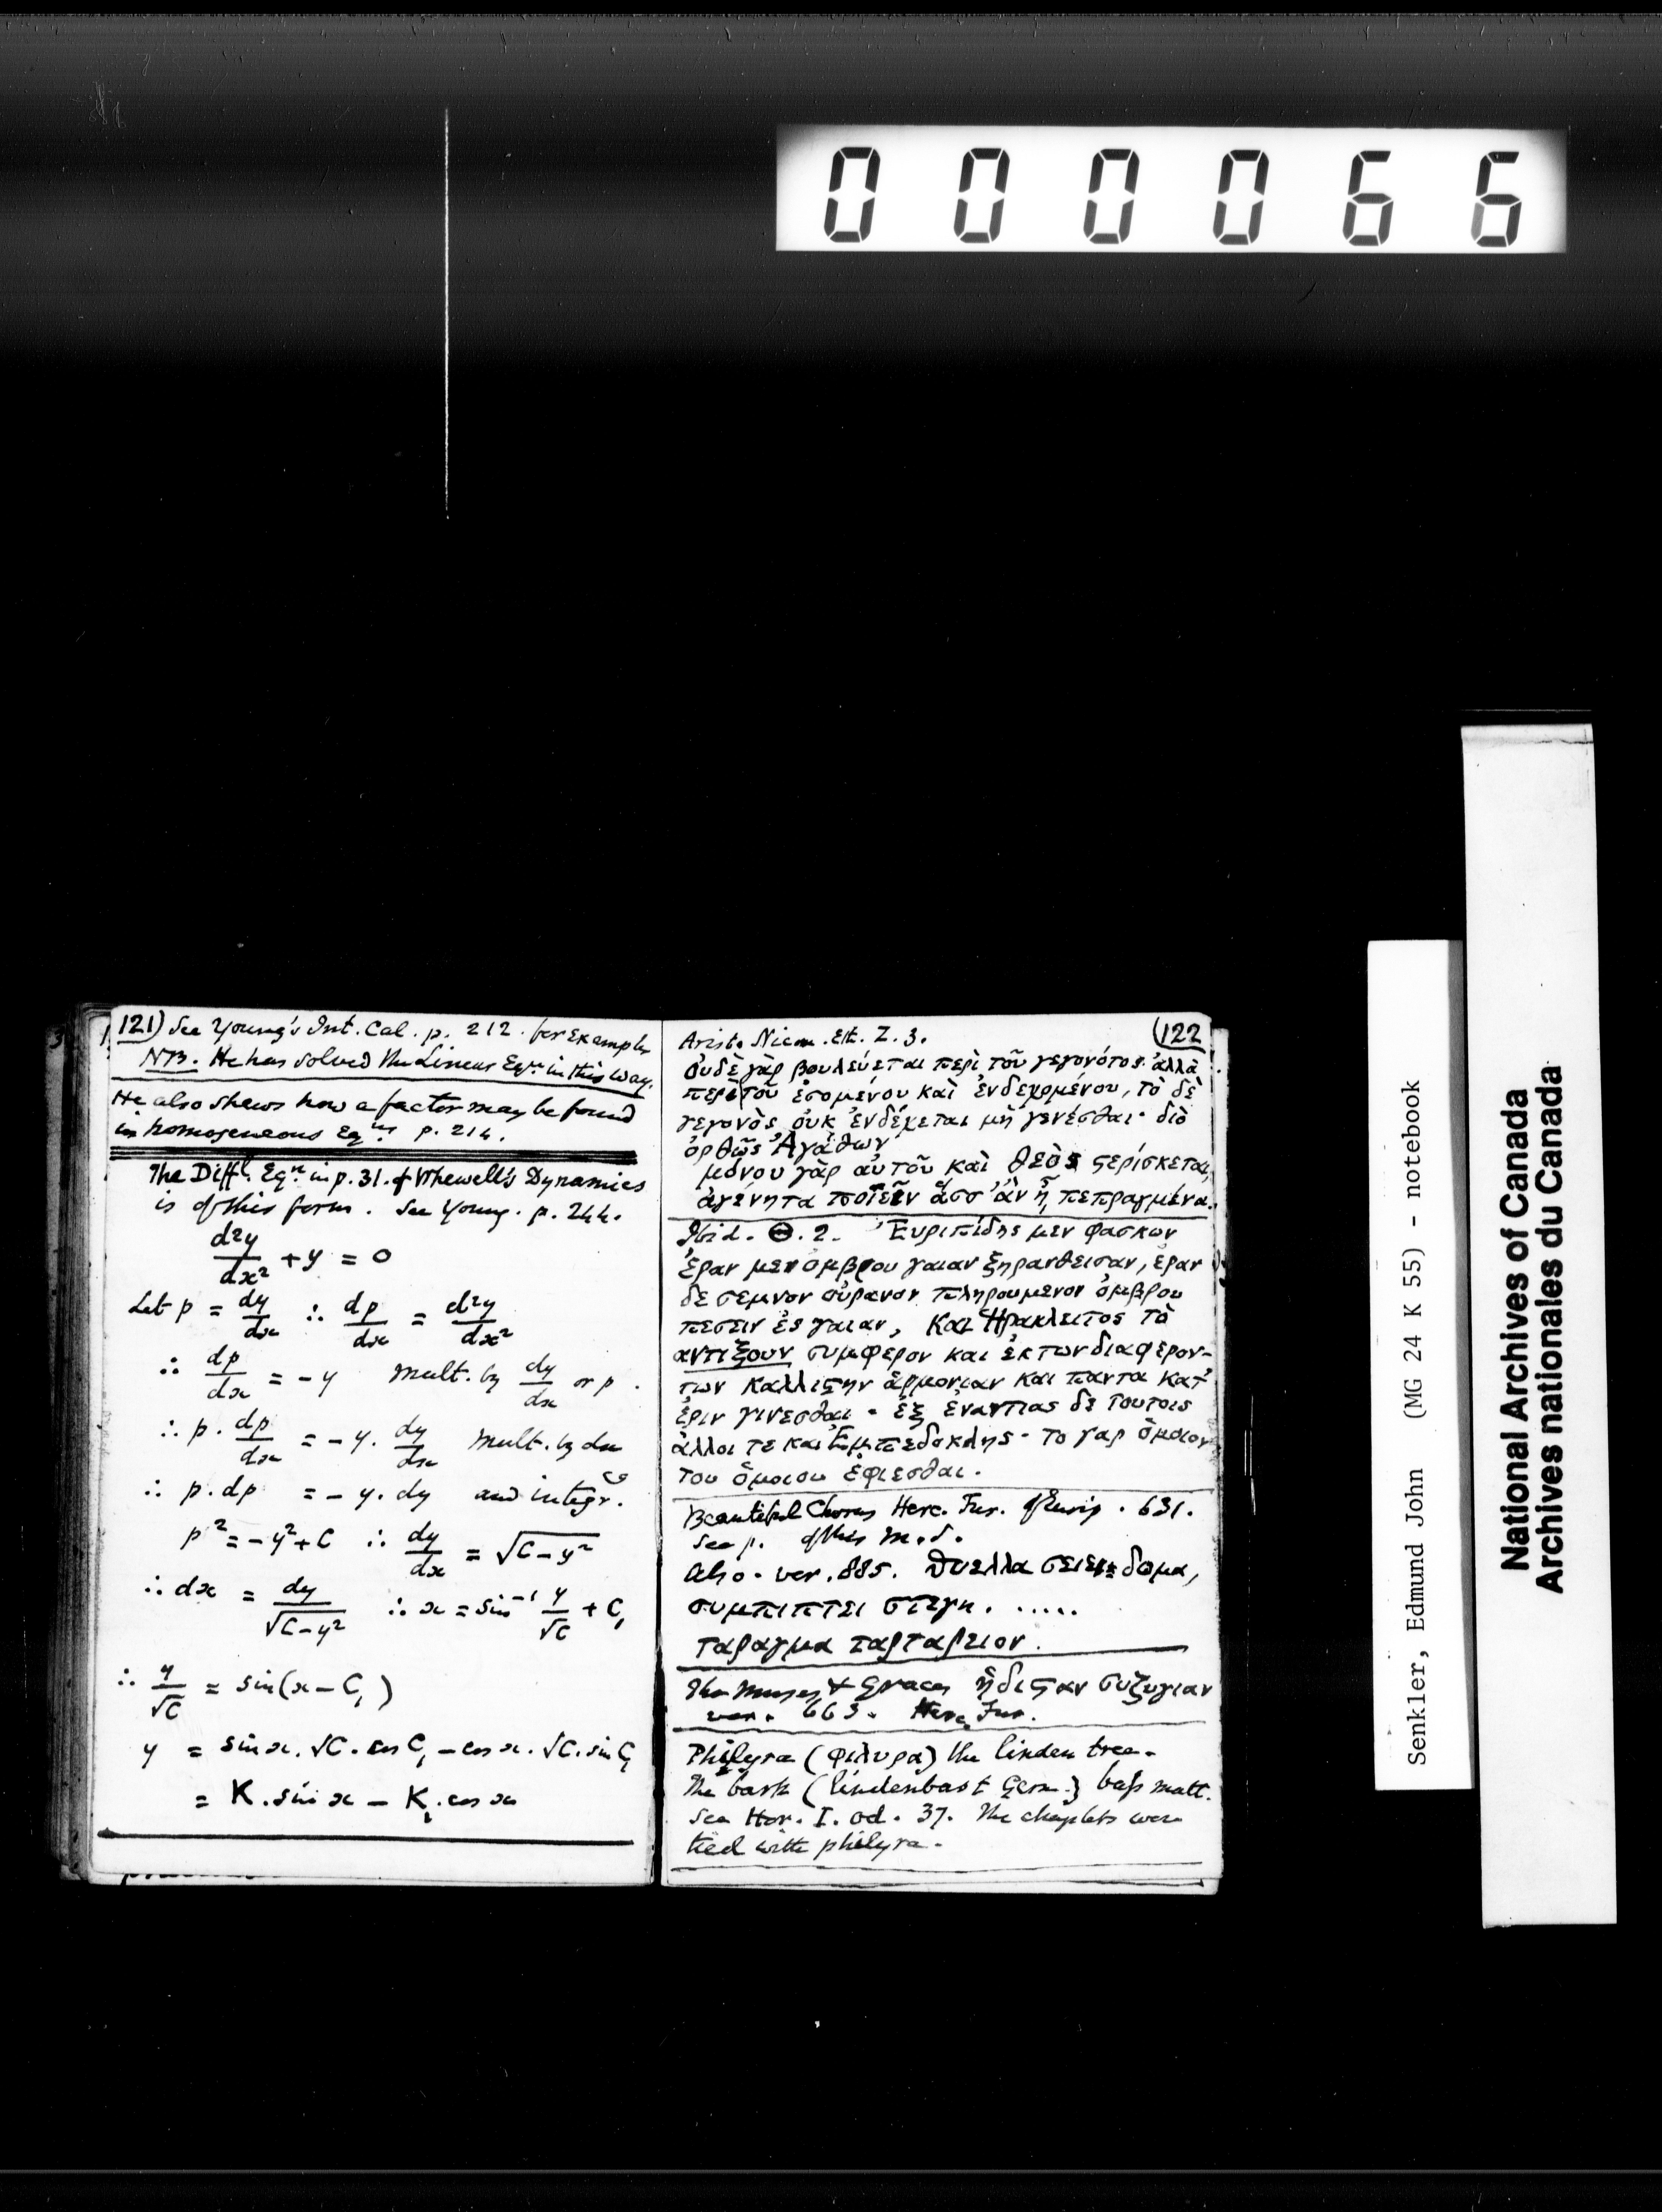 000066
121) See Young's Int. Cal. p. 212. for Examples
NB. He has solved the Linear Eqn. in this way.
He also shews how a factor may be found
in homogeneous Eqns p. 214.
The Diffl. Eqn. in p. 31. of Whewell's Dynamics
is of this form. See Young. p. 244.
d2y/dx2 + y = 0
Let p = dy/dx ∴ dp/dx = d2y/dx2
∴ dp/dx = -y mult. by dy/dx or p.
∴ p. dp/dx = -y. dy/dx mult. by dx
∴ p. dp = -y. dy and integr.
p2 = -y2 + C ∴ dy/dx = √C-y2
∴ dx = dy/√C-y2 ∴ x = sin-1 y/√C + C1
∴ y/√C = sin(x - C1)
y = sin x. √C. cos C1 - cos x. √C. sin C1
= K. sin x - K1. cos x
(122
Arist. Nicom. Eth. Z. 3.
ὀυδὲ γὰρ βουλεύεται περὶ τοῦ γεγονότος ἀλλὰ
περὶ τοῦ ἐσομένου καὶ ἐνδεχομένου, τὸ δὲ
γεγονὸς ὀυκ ἐνδέχεται μὴ γενέσθαι· διὸ
ὀρθῶς Ἀγάθων
μόνου γὰρ ἀυτοῦ καὶ θεὸς ϛερίσκεται,
ἀγένητα ποιεῖν ἅσσ' ἂν ᾖ πεπραγμένα.
Ibid. Θ. 2. Ἐυριπίδης μεν φασκων
ἐραν μεν ομβρου γαιαν ξηρανθεισαν, ἐραν
δε σεμνον ὀυρανον πληρουμενον ὀμβρου
πεσειν ἐς γαιαν, και Ἡρακλειτος τὸ
αντιξουν συμφερον και ἐκ των διαφερον-
των καλλιϛην ἁρμονιαν και παντα κατ'
ἐριν γινεσθαι - ἐξ ἐναντιας δε τουτοις
ἀλλοι τε και Ἐμπεδοκλης - το γαρ ὁμοιον
του ὁμοιου ἐφιεσθαι.
Beautiful Chorus Herc. Fur. of Eurip. 631.
See p. of this M.S.
Also. ver. 885. θυελλα σειει δωμα,
συμπιπτει στεγη. .....
ταραγμα ταρταρειον.
The Muses & Graces ἡδιϛαν συζυγιαν
ver. 663. Herc. Fur.
Philyra (φιλυρα) the linden tree.
The bark (lindenbast Germ.) bass matt.
See Hor. I. od. 37. The chaplets were
tied with philyra.
Senkler, Edmund John (MG 24 K 55) - notebook
National Archives of Canada
Archives nationales du Canada